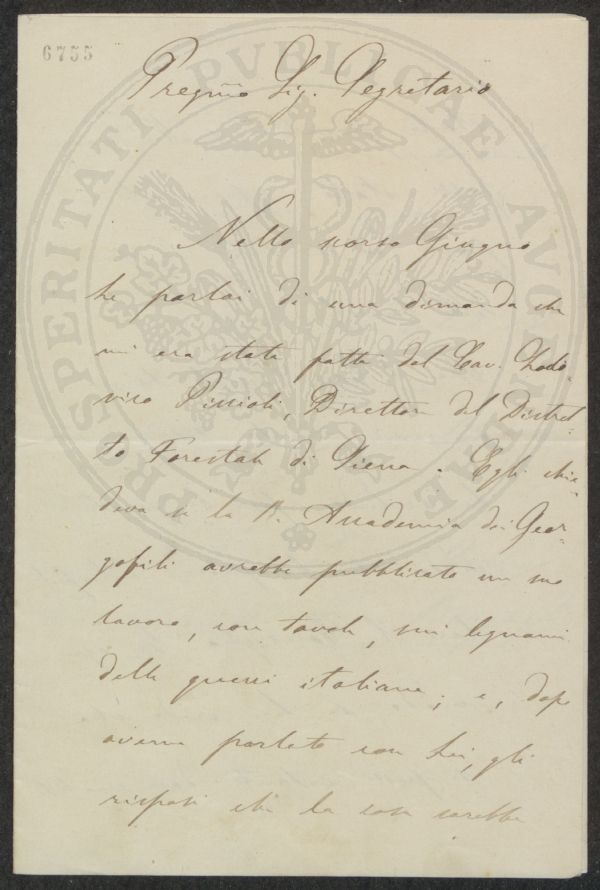 6755
PROSPERITATI PVBLICAE AVGENDAE
Pregmo Sig. Segretario
Nello scorso Giugno
Le parlai di una dimanda che
mi era stata fatta dal Cav. Lodo-
vico Piccioli, Direttore del Distret-
to Forestale di Siena. Egli chie-
deva se la R. Accademia dei Geor-
gofili avrebbe pubblicato un suo
lavoro, con tavole, sui legnami
delle querci italiane; e, dopo
averne parlato con Lei, gli
risposi che la cosa sarebbe